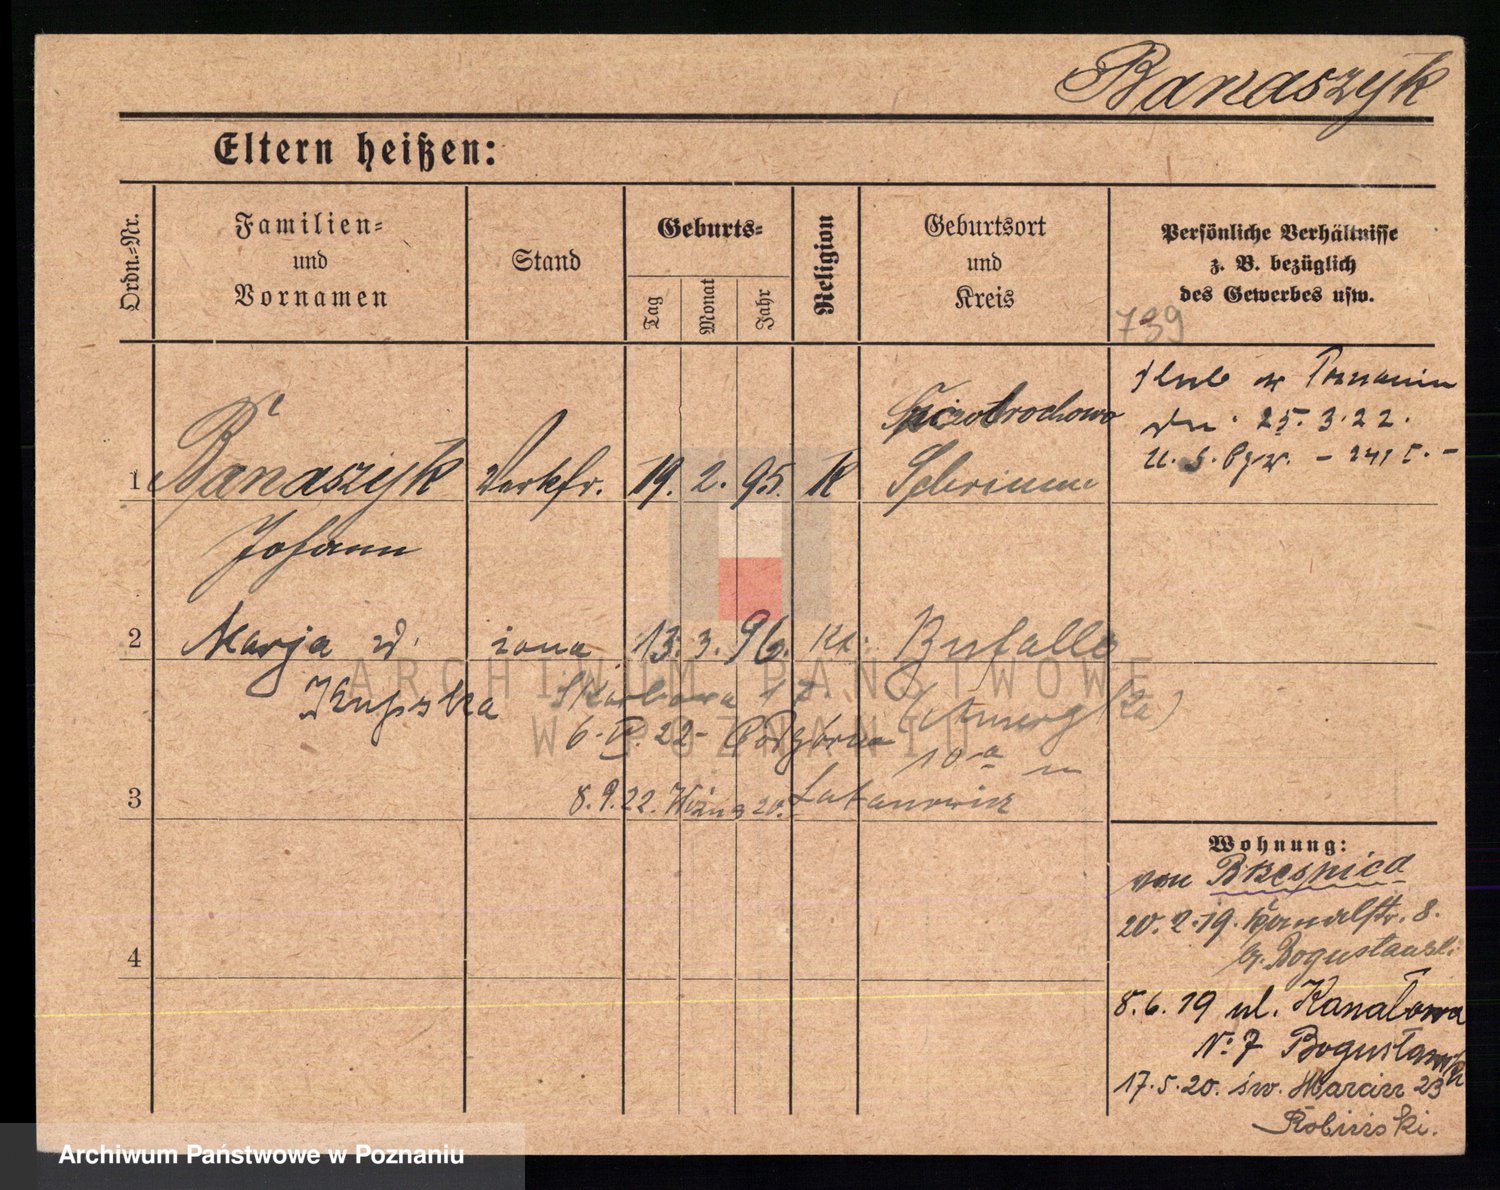 Banaszyk
Eltern heißen:
Ordn.-Nr.
Familien-
und
Vornamen
Stand
Geburts-
Tag
Monat
Jahr
Religion
Geburtsort
und
Kreis
Persönliche Verhältnisse
z. B. bezüglich
des Gewerbes usw.
739
1 Banaszyk Verkfr. 19. 2. 95. K
Schrimm
Johann
ślub w Poznaniu
dn. 25. 3. 22.
2 Marja żona 13. 3. 96. Kt. Buffallo
(Ameryka)
Skarbowa 17.
6. 22 Podgórna 10a m
3
8. 9. 22. 20.
4
Wohnung:
von
20. 2. 19. Kanalstr. 8.
b. Bogusławski
8. 6. 19 ul. Kanałowa
No 7 Bogusławski
17. 5. 20. św. Marcin 23
Robiński.
ARCHIWUM PAŃSTWOWE
W POZNANIU
Archiwum Państwowe w Poznaniu